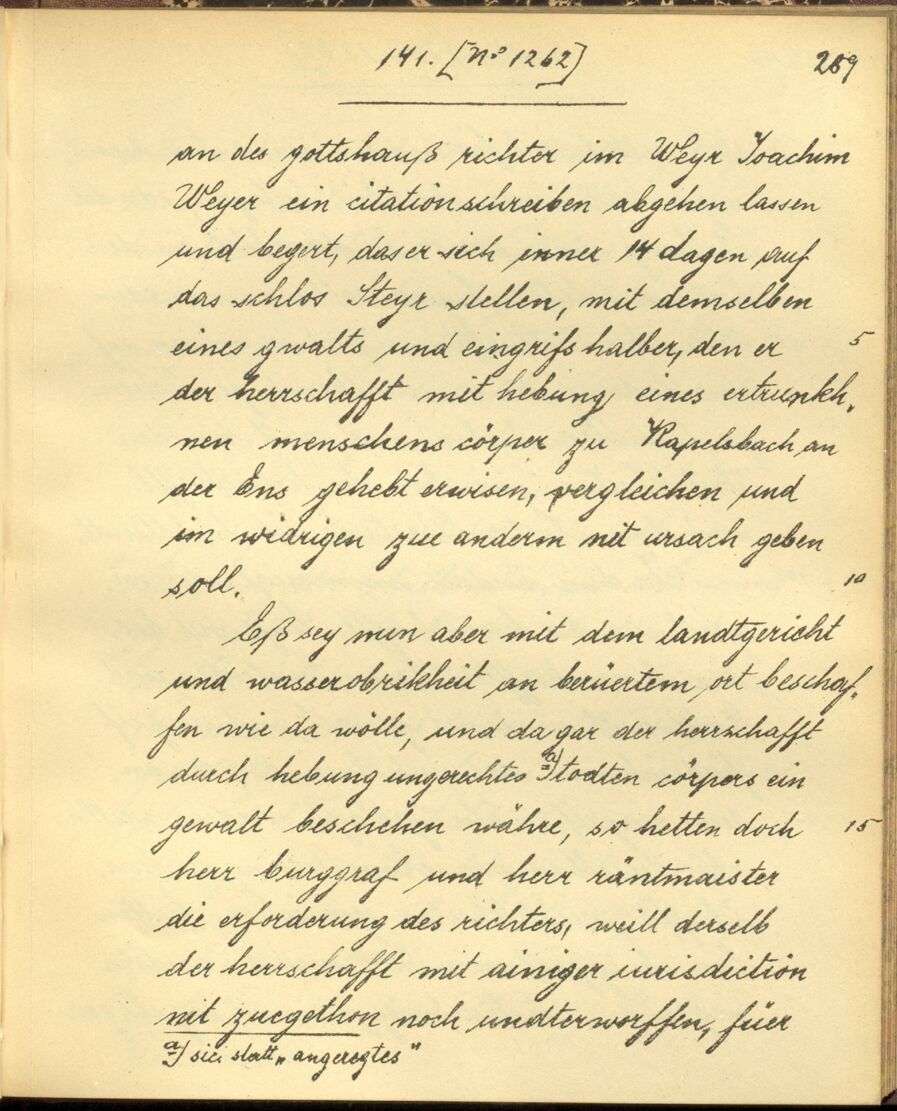 141. [No 1262]
289
an des gottshauß richter im Weyr Joachim
Weyer ein citationschreiben abgehen lassen
und begert, das er sich inner 14 dagen auf
das schlos Steyr stellen, mit demselben
eines gwalts und eingrifs halber, den er 5
der herrschafft mit hebung eines ertrunkh„
nen menschens cörper zu Kapelsbach an
der Ens gehebt erwisen, vergleichen und
im widrigen zue anderm nit ursach geben
soll. 10
Eß sey nun aber mit dem landtgericht
und wasserobrikheit an berüertem ort beschaf„
fen wie da wölle, und da gar der herrschafft
durch hebung ungerechtes a) todten cörpers ein
gewalt beschehen währe, so hetten doch 15
herr burggraf und herr räntmaister
die erforderung des richters, weill derselb
der herrschafft mit ainiger iurisdiction
nit zuegethon noch undterworffen, füer
a) sic; statt „angeregtes"